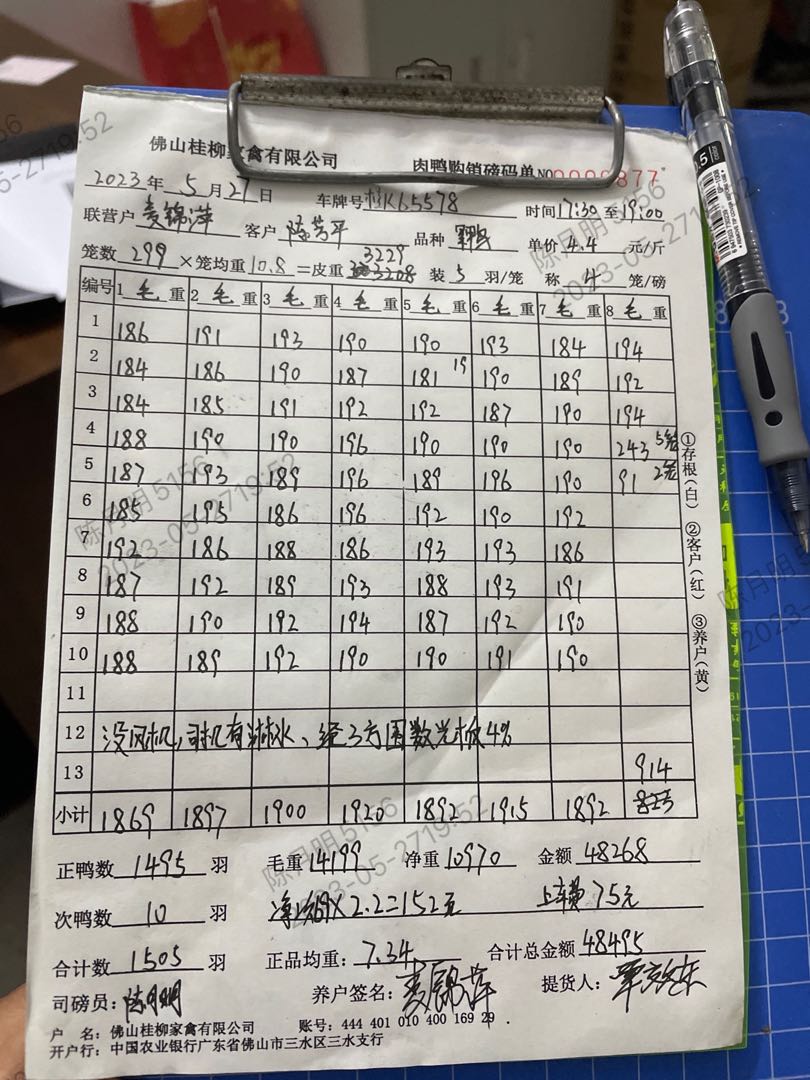 佛山桂柳家禽有限公司 肉鸭购销磅码单 NO 877
2023年 5月27日 车牌号 K65578 时间 17:30 至 19:00
联营户 麦锦萍 客户 陈芳平 品种 单价 4.4 元/斤
3229
笼数 299 ×笼均重 10.8 =皮重 3208 装 5 羽/笼 称 4 笼/磅
编号 1 毛 重 2 毛 重 3 毛 重 4 毛 重 5 毛 重 6 毛 重 7 毛 重 8 毛 重
1 186 191 193 190 190 193 184 194
2 184 186 190 187 181 19 190 189 192
3 184 185 191 192 192 187 190 194
4 188 190 190 196 190 190 190 243 5笼
5 187 193 189 196 189 196 190 91 2笼
6 185 195 186 196 192 190 192
7 192 186 188 186 193 193 186
8 187 192 189 193 188 193 191
9 188 190 192 194 187 192 190
10 188 189 192 190 190 191 190
11
12 没风机,司机有淋水、经3方围数 4%
13 914
小计 1869 1897 1900 1920 1892 1915 1892
①存根(白) ②客户(红) ③养户(黄)
正鸭数 1495 羽 毛重 14199 净重 10970 金额 48268
次鸭数 10 羽 净 69×2.2=152元 上车费75元
合计数 1505 羽 正品均重: 7.34 合计总金额 48495
司磅员: 陈月明 养户签名: 麦锦萍 提货人:
户 名: 佛山桂柳家禽有限公司 账号: 444 401 010 400 169 29
开户行: 中国农业银行广东省佛山市三水区三水支行
陈月明 5156
2023-05-27 19:52